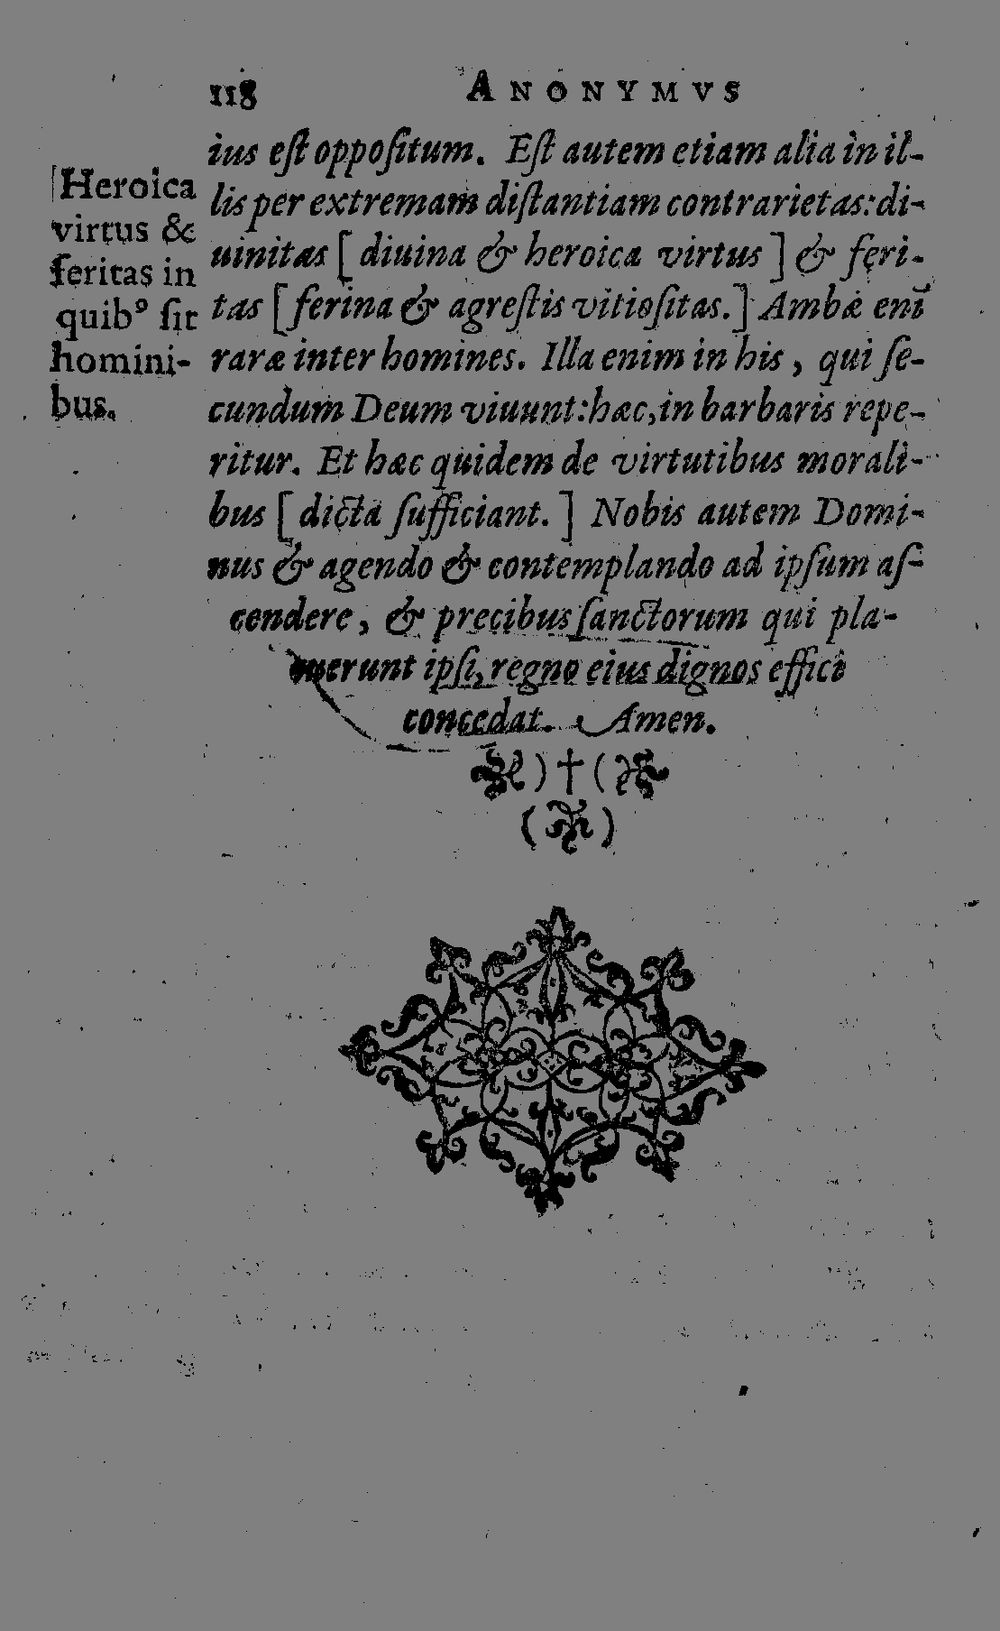 118 ANONYMVS
ius eſt oppoſitum. Eſt autem etiam alia in il-
lis per extremam diſtantiam contrarietas: di-
uinitas [ diuina & heroica virtus ] & feri-
tas [ ferina & agreſtis vitioſitas. ] Ambæ enĩ
raræ inter homines. Illa enim in his , qui ſe-
cundum Deum viuunt: hæc, in barbaris repe-
ritur. Et hæc quidem de virtutibus morali-
bus [ dicta ſufficiant. ] Nobis autem Domi-
nus & agendo & contemplando ad ipſum aſ-
cendere , & precibus ſanctorum qui pla-
uerunt ipſi, regno eius dignos effici
concedat. Amen.
Heroica
virtus &
feritas in
quibꝰ ſit
homini-
bus.